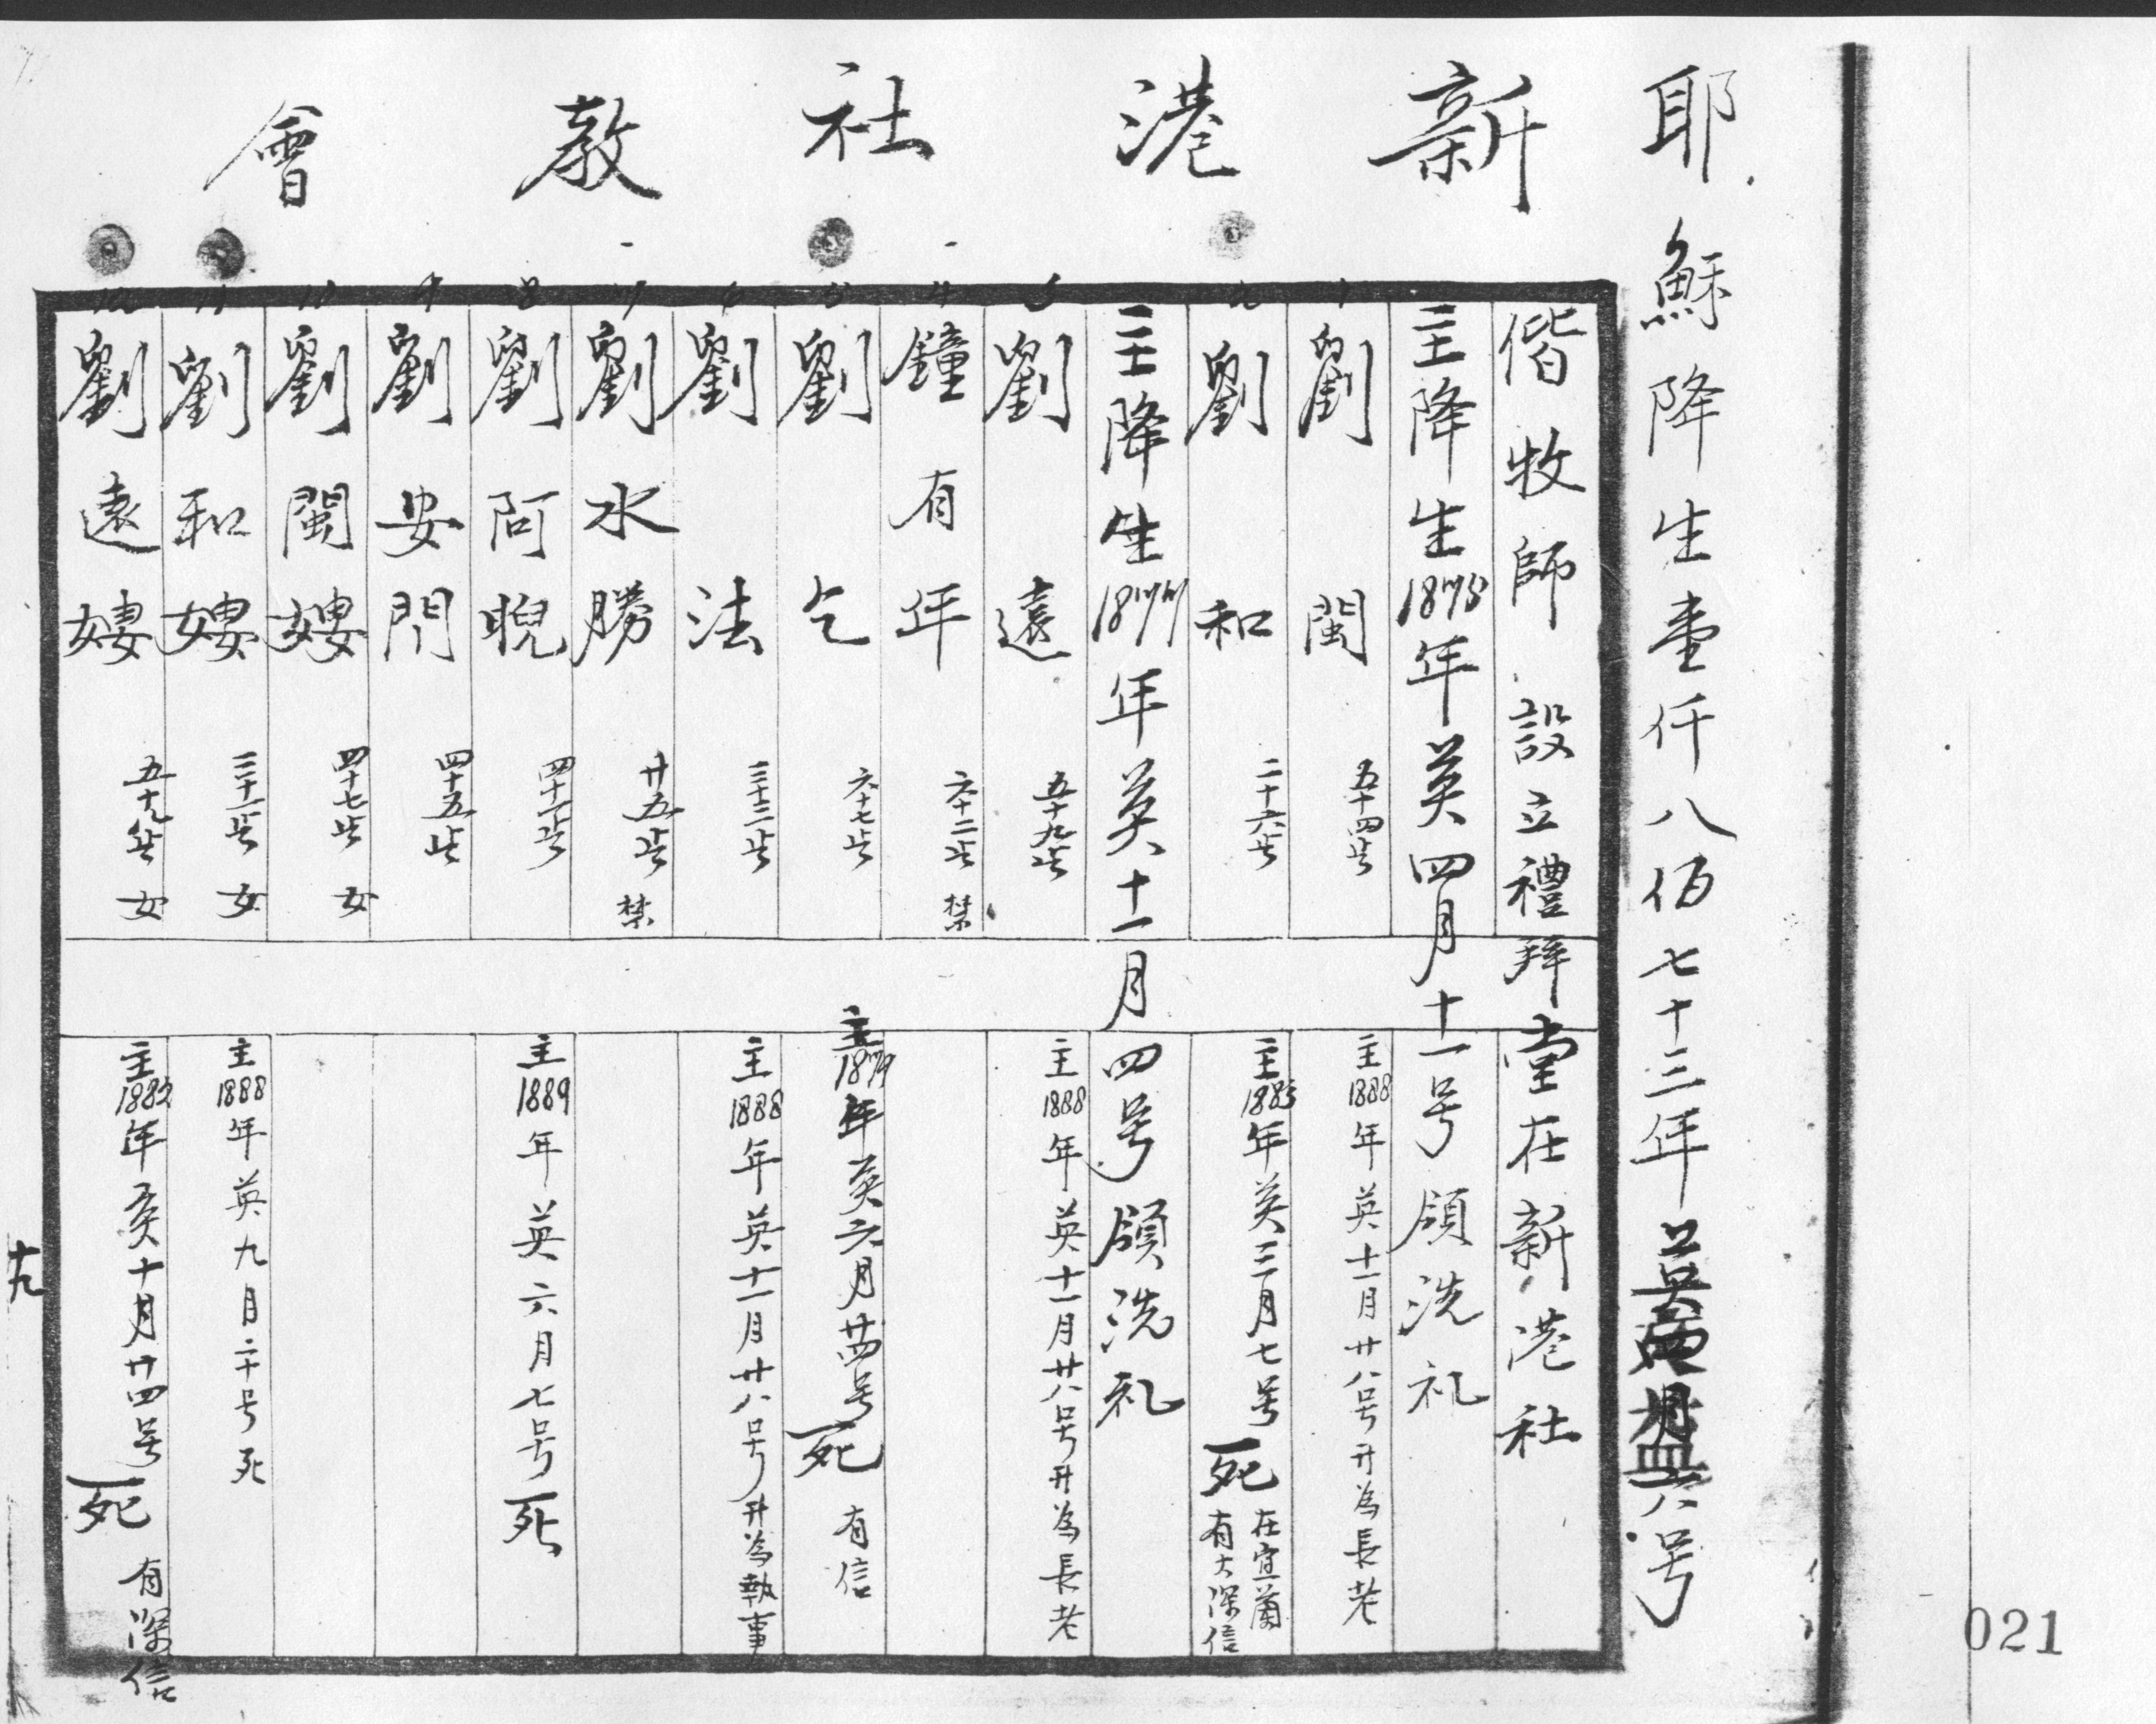 新港社教會
耶穌降生壹仟八佰七十三年英
六号
偕牧師設立禮拜堂在新港社
主降生1875年英四月十一号領洗礼
1 劉閩 五十四歩 主1888年英十一月廿八号升為長老
2 劉和 二十六歩 主1885年英三月七号死 在宜蘭 有大深信
主降生1877年英十一月四号領洗礼
3 劉遠 五十九歩 主1888年英十一月廿八号升為長老
4 鐘有年 六十二歩 禁
5 劉乞 六十七歩 主1879年英六月廿四号死 有信
6 劉法 三十三歩 主1888年英十一月廿八号升為執事
7 劉水勝 廿五歩 禁
8 劉阿睨 四十一歩 主1889年英六月七号死
9 劉安門 四十五歩
10 劉閩㛹 四十七歩 女
11 劉和㛹 三十一歩 女 主1888年英九月二十号死
12 劉遠㛹 五十九歩 女 主1882年英十月廿四号死 有深信
十九
021